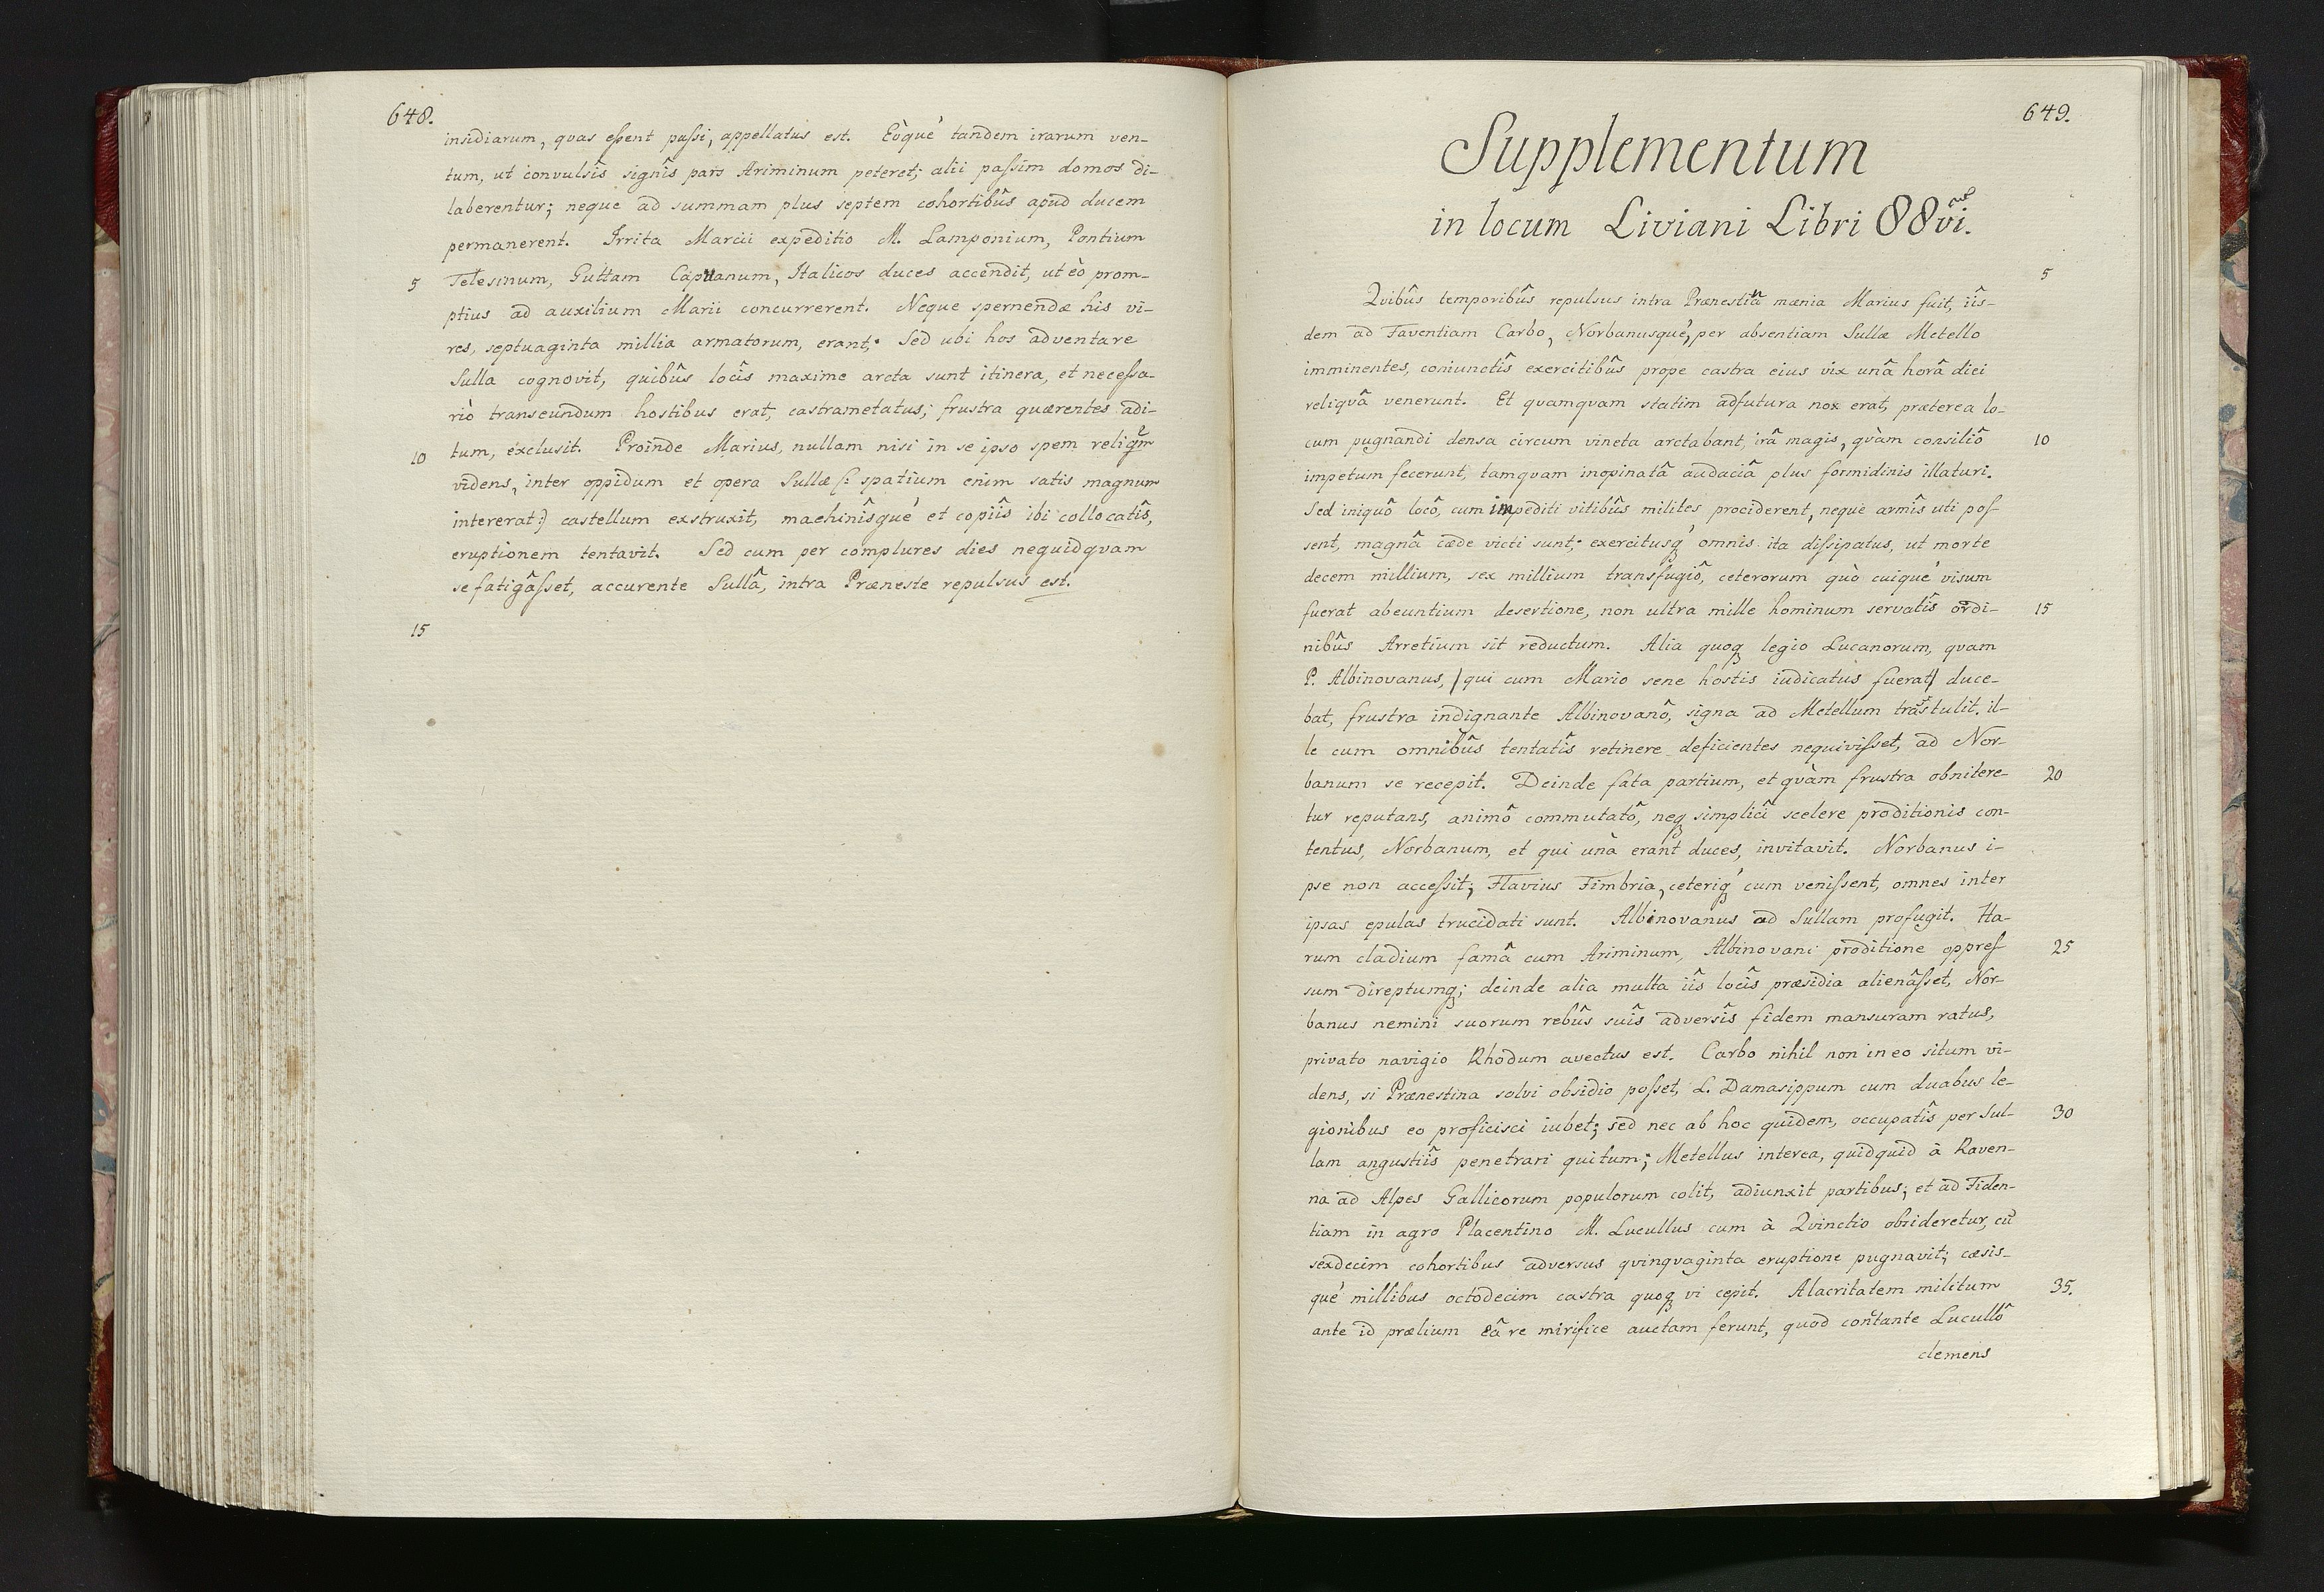 648.
insidiarum, quas eſsent paſsi, appellatus est. Eòqué tandem irarum ven-
tum, ut convulsîs signîs pars Ariminum peteret; alii paſsim domos di-
laberentur; neque ad summam plus septem cohortibûs apud ducem
permanerent. Irrita Marcii expeditio M. Lamponium, Pontium
5 Telesinum, Guttam Capuanum, Italicos duces accendit, ut eò prom-
ptius ad auxilium Marii concurrerent. Neque spernendæ his vi-
res, septuaginta millia armatorum, erant. Sed ubi hos adventare
Sulla cognovit, quibûs locîs maxime arcta sunt itinera, et neceſsa-
riò transeundum hostibus erat, castrametatus; frustra quærentes adi-
10 tum, exclusit. Proinde Marius, nullam nisi in se ipso spem
videns, inter oppidum et opera Sullæ (: spatium enim satis magnum
intererat:) castellum exstruxit, machinîsqué et copiîs ibi collocatîs,
eruptionem tentavit. Sed cum per complures dies nequidquam
se fatigâſset, accurente Sullâ, intra Præneste repulsus est.
15
649.
Supplementum
in locum Liviani Libri 88vi.
5
Quibûs temporibûs repulsus intra mænia Marius fuit, iîs-
dem ad Faventiam Carbo, Norbanusqué, per absentiam Sullæ Metello
imminentes, coniunctîs exercitibûs prope castra eius vix unâ horâ diei
reliquâ venerunt. Et quamquam statim adfutura nox erat, præterea lo-
cum pugnandi densa circum vineta arctabant, irâ magis, quàm consiliô 10
impetum fecerunt, tamquam inopinatâ audaciâ plus formidinis illaturi.
Sed iniquô locô, cum impediti vitibûs milites prociderent, neque armîs uti poſ-
sent, magnâ cæde victi sunt; exercitusq́ꝫ omnis ita diſsipatus, ut morte
decem millium, sex millium transfugiô, ceterorum quò cuiqué visum
fuerat abeuntium desertione, non ultra mille hominum servatîs ordi- 15
nibûs Arretium sit reductum. Alia quoqꝫ legio Lucanorum, quam
P. Albinovanus, /qui cum Mario sene hostis iudicatus fuerat/ duce-
bat, frustra indignante Albinovanô, signa ad Metellum trãstulit. il-
le cum omnibûs tentatîs retinere deficientes nequiviſset, ad Nor-
banum se recepit. Deinde fata partium, et quàm frustra obnitere- 20
tur reputans, animô commutatô, neqꝫ simplicî scelere proditionis con-
tentus, Norbanum, et qui unà erant duces, invitavit. Norbanus i-
pse non acceſsit; Flavius Fimbria, ceteriq́ꝫ cum veniſsent, omnes inter
ipsas epulas trucidati sunt. Albinovanus ad Sullam profugit. Ha-
rum cladium famâ cum Ariminum, Albinovani proditione oppreſ- 25
sum direptumqꝫ; deinde alia multa iîs locîs præsidia alienâſset, Nor-
banus nemini suorum rebûs suîs adversîs fidem mansuram ratus,
privato navigio Rhodum avectus est. Carbo nihil non in eo situm vi-
dens, si Prænestina solvi obsidio poſset, L. Damasippum cum duabus le-
gionibus eo proficisci iubet; sed nec ab hoc quidem, occupatîs per Sul- 30
lam angustiîs penetrari quitum; Metellus interea, quidquid à Raven-
na ad Alpes Gallicorum populorum colit, adiunxit partibus; et ad Fiden-
tiam in agro Placentino M. Lucullus cum à Quinctio obsideretur, cũ
sexdecim cohortibus adversus quinquaginta eruptione pugnavit; cæsis-
qué millibus octodecim castra quoqꝫ vi cepit. Alacritatem militum 35.
ante id prælium eâ re mirifice auctam ferunt, quod Lucullô
clemens